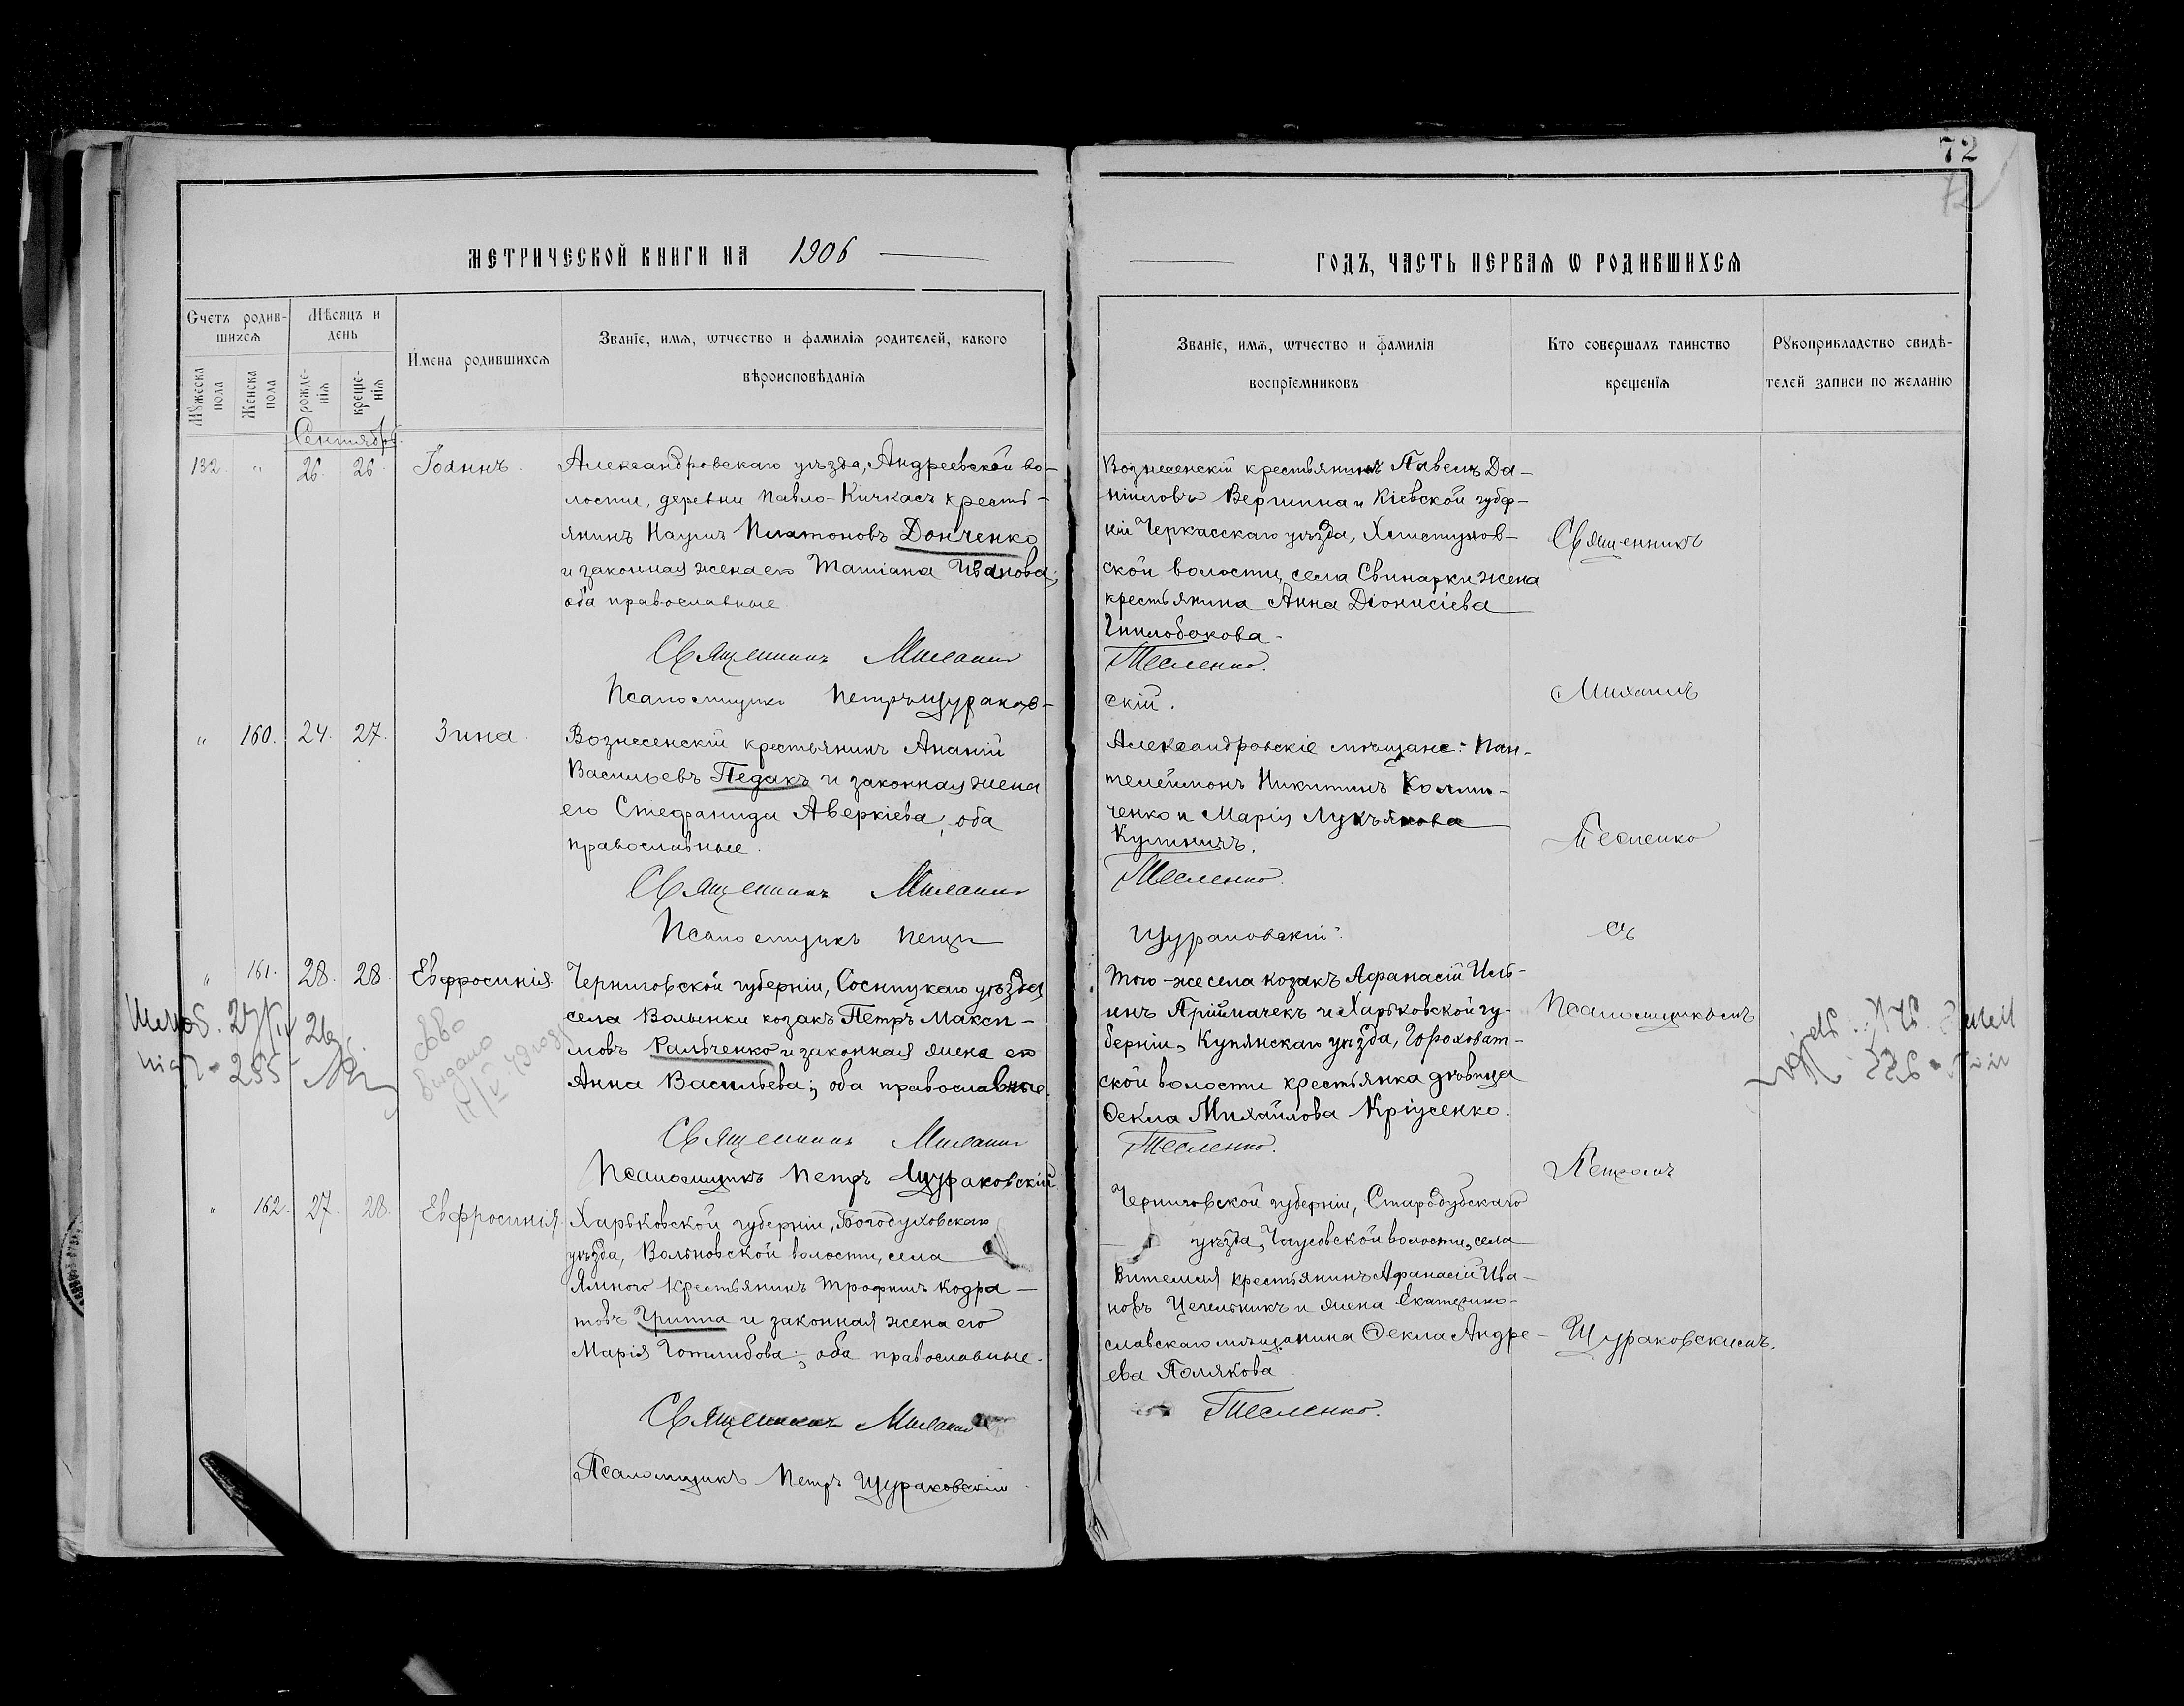 72
МЕТРИЧЕСКОЙ КНИГИ НА 1906
ГОДЪ, ЧАСТЬ ПЕРВАЯ Ѡ РОДИВШИХСЯ
Счетъ родив-
шихся
Мѣсяцъ и
день
Мꙋжеска
пола
Женска
пола
рожде-
нія
креще-
нія
Имена родившихся
Званіе, имя, ѡтчество и фамилія родителей, какого
вѣроисповѣданія
Званіе, имя, ѡтчество и фамилія
воспріемниковъ
Кто совершалъ таинство
крещенія
Рꙋкоприкладство свидѣ-
телей записи по желанію
Сентябрь
132. " 26. 26. Іоаннъ.
Александровскаго уѣзда, Андреевской во-
лости, деревни Павло-Кичкасъ кресть-
янинъ Наумъ Платоновъ Донченко
и законная жена его Татіана Иванова;
оба православные.
Священникъ Михаилъ
Псаломщикъ Петръ Щураков-
Вознесенскій крестьянинъ Павелъ Да-
ніиловъ и Кіевской губер-
ніи Черкасскаго уѣзда,
ской волости, села Свинарки жена
крестьянина Анна Діонисіева
Гнилобокова.
Тесленко.
скій.
" 160. 24. 27. Зина.
Вознесенскій крестьянинъ Ананій
Васильевъ Педакъ и законная жена
его Стефанида Аверкіева, оба
православные.
Священникъ Михаилъ
Псаломщикъ Петръ
Александровскіе мѣщане: Пан-
телеймонъ Никитинъ
ченко и Марія Лукьянова
Кулиничъ.
Тесленко.
Щураковскій.
" 161. 28. 28. Евфросинія.
Черниговской губерніи, Сосницкаго уѣзда
села Волынки козакъ Петръ Макси-
мовъ Ральченко и законная жена его
Анна Васильева; оба православные.
Священникъ Михаилъ
Псаломщикъ Петръ Щураковскій.
Того-же села козакъ Афанасій Иль-
инъ Приймачекъ и Харьковской гу-
берніи, Купянскаго уѣзда, Гороховат-
ской волости крестьянка дѣвица
Ѳекла Михайлова Кріусенко.
Тесленко.
27/IV 26
255
Выдано
" 162. 27. 28. Евфросинія
Харьковской губерніи, Богодуховскаго
уѣзда, Вольновской волости, села
Ямного крестьянинъ Трофимъ Кодра-
товъ Гриппа и законная жена его
Марія Готлибова; оба православные.
Священникъ Михаилъ
Псаломщикъ Петръ Щураковскій.
Черниговской губерніи, Стародубскаго
уѣзда, Чаусовской волости, села
Вителмя крестьянинъ Афанасій Ива-
новъ Цегельникъ и жена Екатерино-
славскаго мѣщанина Ѳекла Андре-
ева Полякова.
Тесленко.
Священникъ
Михаилъ
Тесленко
съ
Псаломщикомъ
Петромъ
Щураковскимъ.